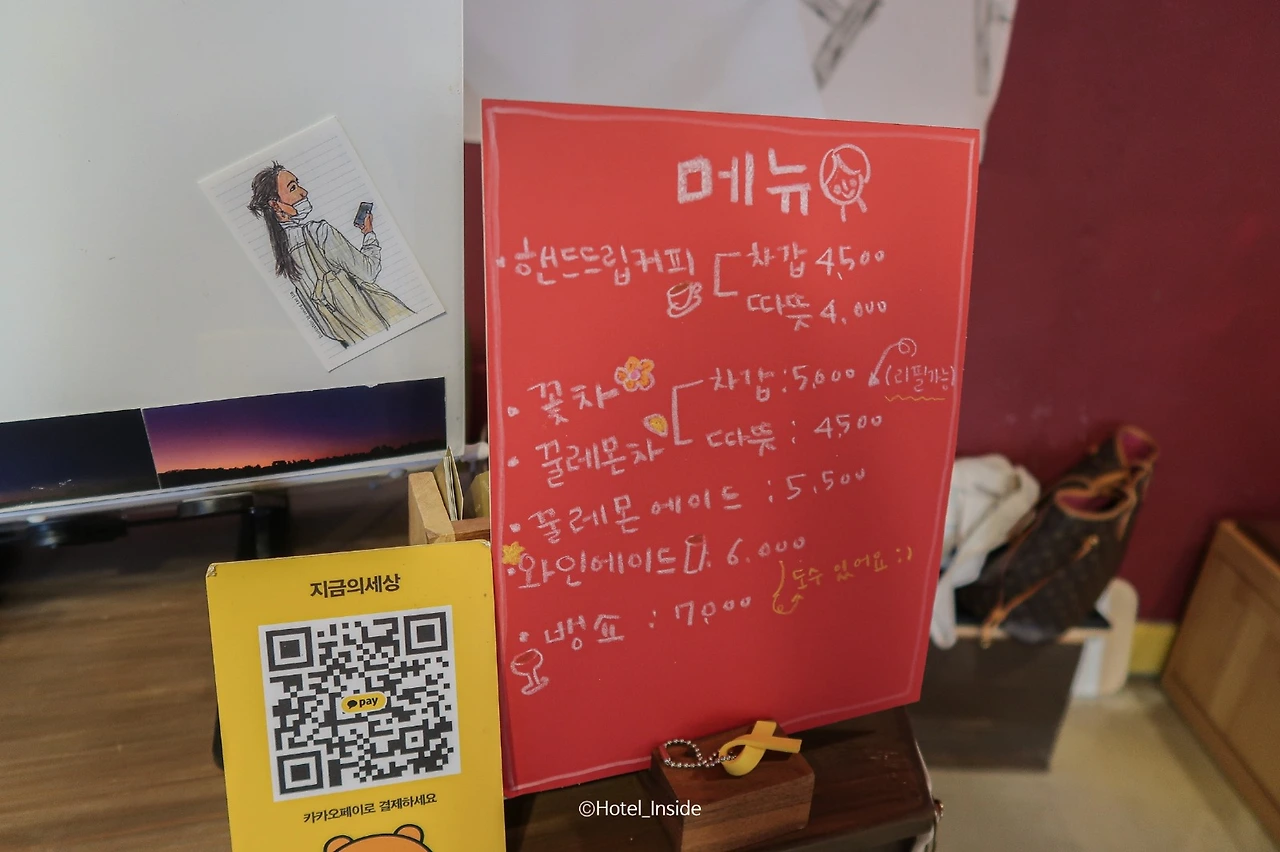 메뉴
· 핸드드립커피 차갑 4,500
따뜻 4,000
· 꽃차 차갑 : 5,000 (리필가능)
· 꿀레몬차 따뜻 : 4,500
· 꿀레몬에이드 : 5,500
· 와인에이드 6,000
도수 있어요 :)
· 뱅쇼 : 7,000
지금의세상
pay
카카오페이로 결제하세요
©Hotel_Inside